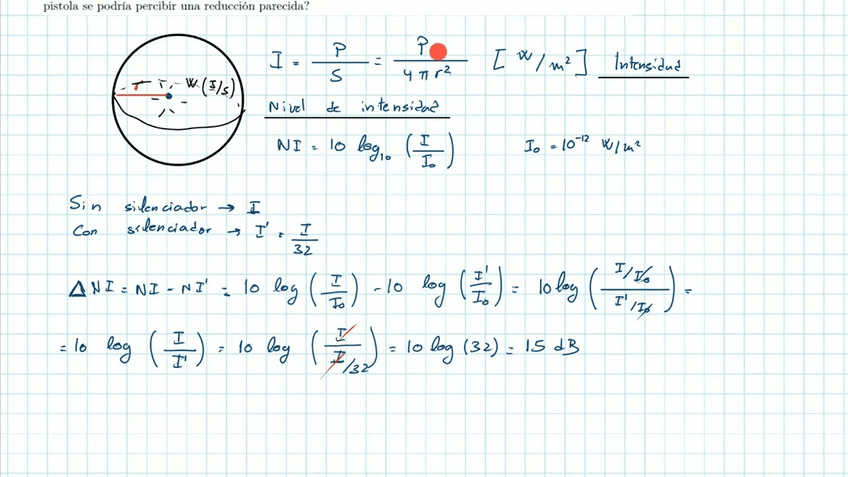 pistola se podría percibir una reducción parecida?
I = P/S = P/4πr² [W/m²] Intensidad
r W (J/s)
Nivel de intensidad
NI = 10 log₁₀ (I/I₀) I₀ = 10⁻¹² W/m²
Sin silenciador → I
Con silenciador → I' = I/32
ΔNI = NI - NI' = 10 log (I/I₀) - 10 log (I'/I₀) = 10 log (I/I₀ / I'/I₀) =
= 10 log (I/I') = 10 log (I / I/32) = 10 log (32) = 15 dB